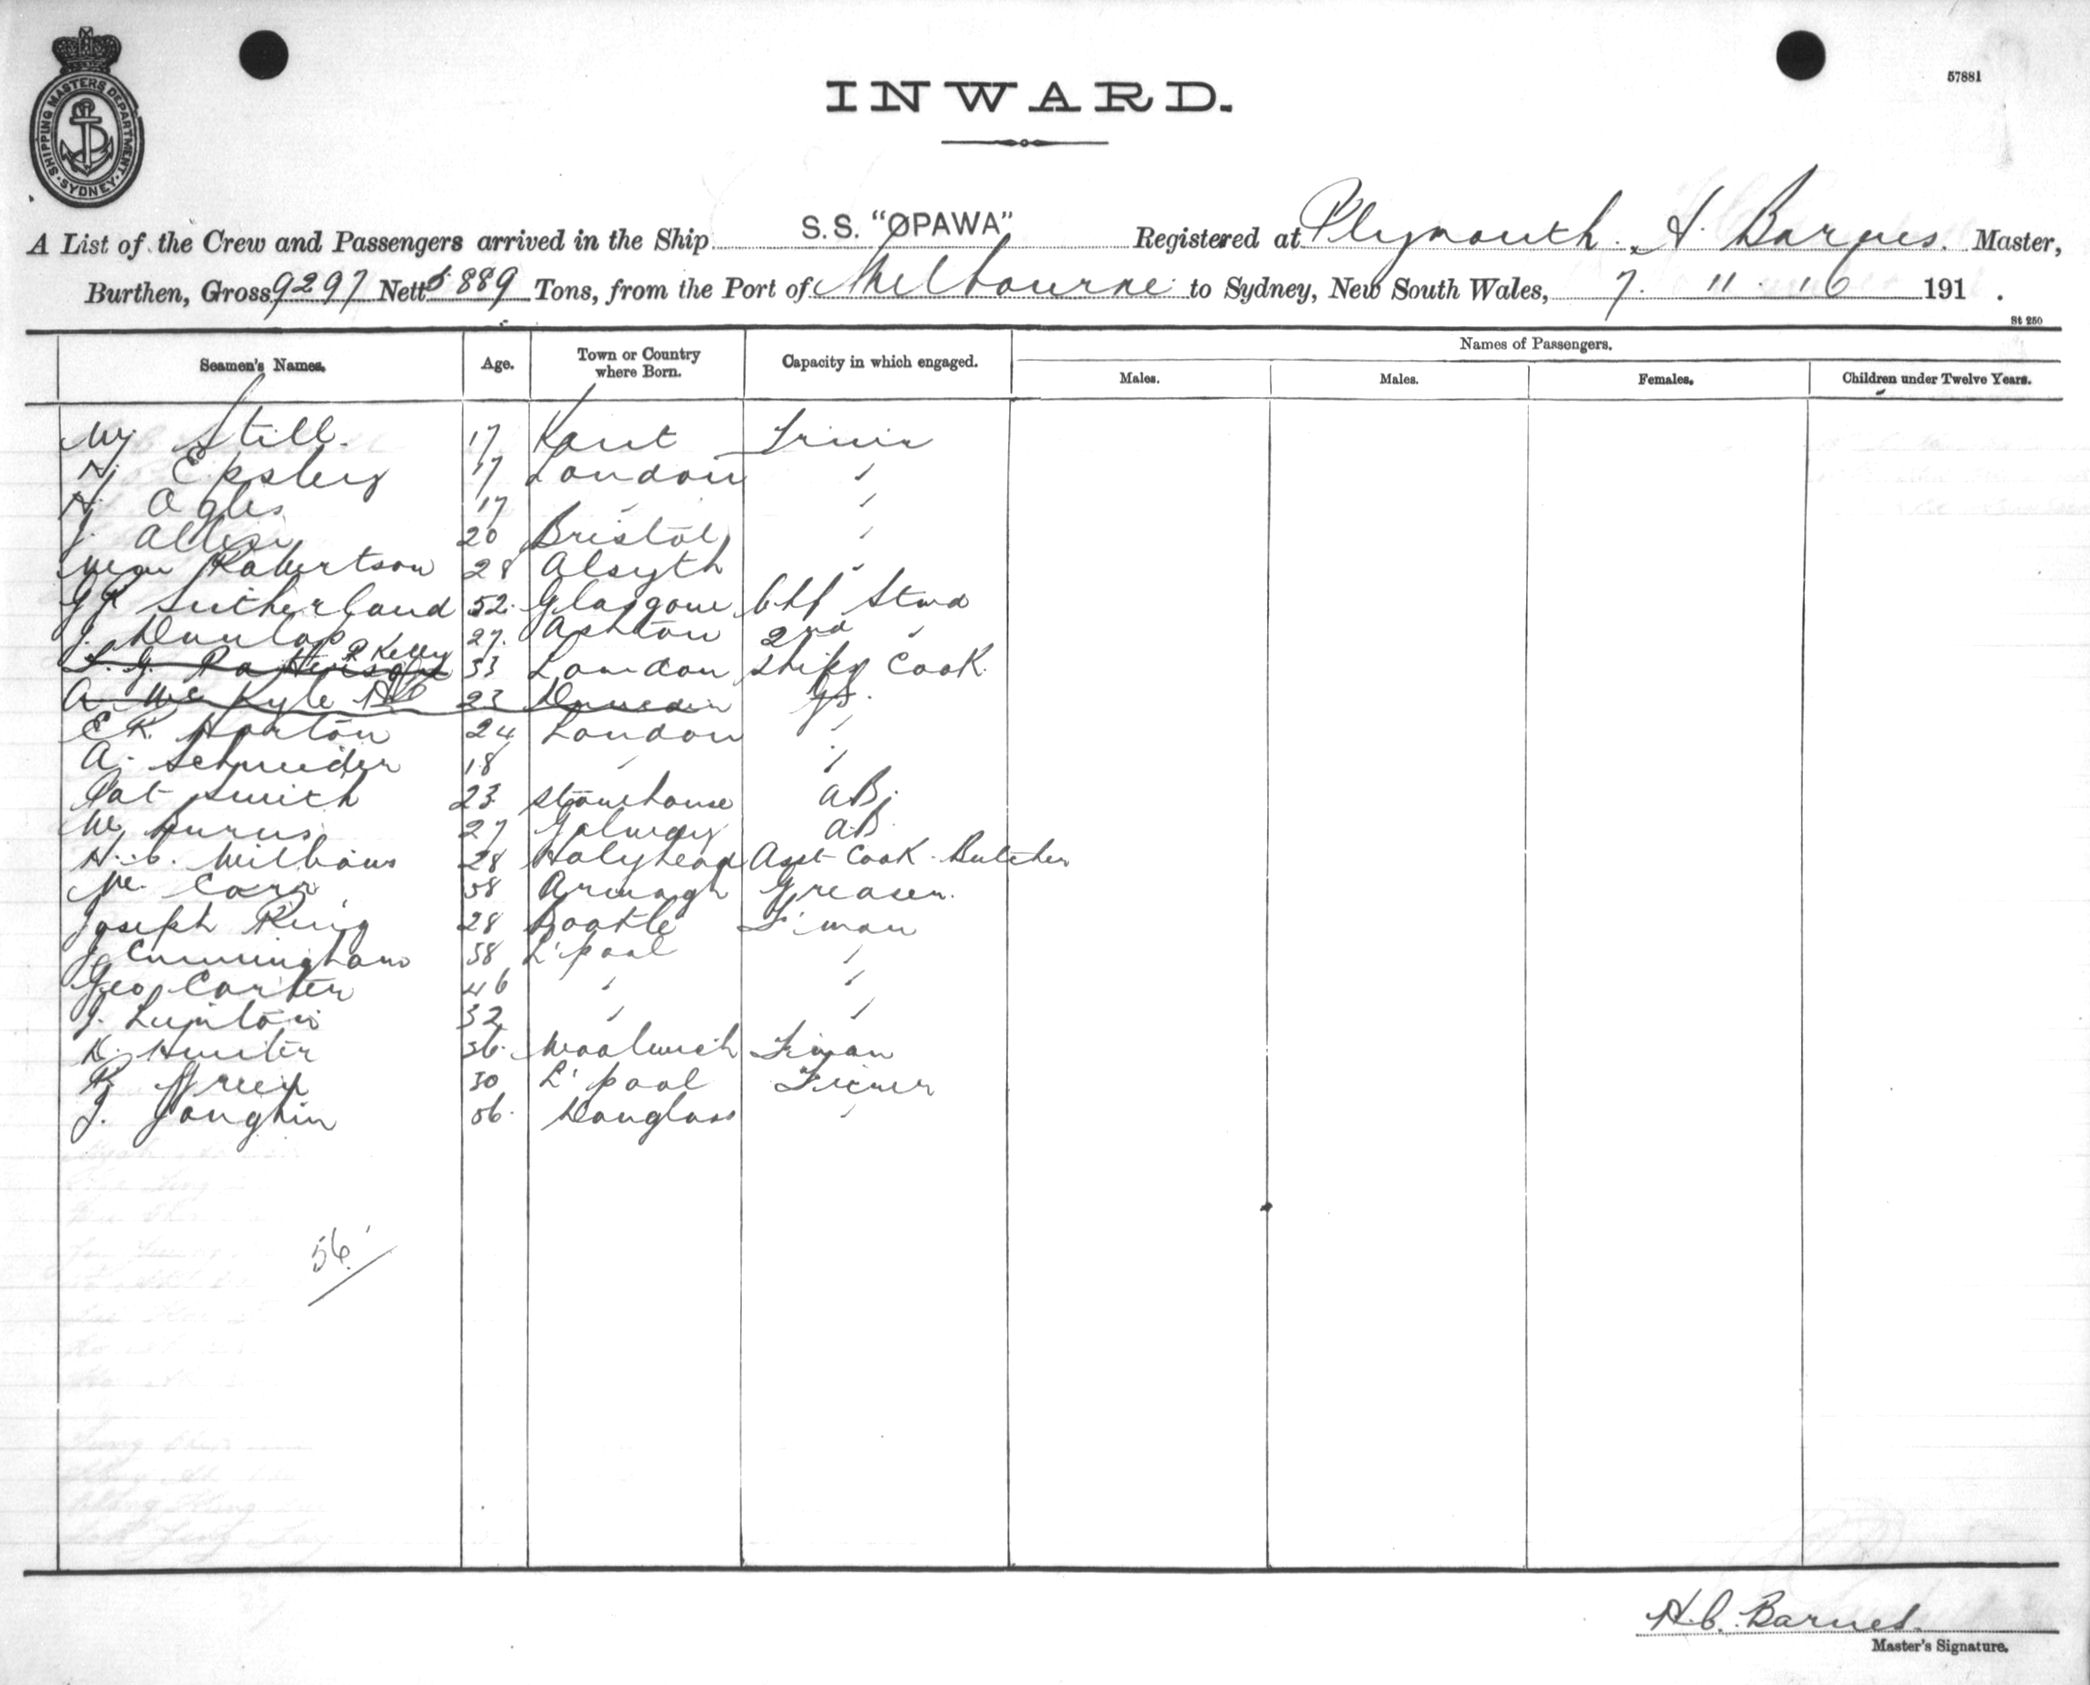 SHIPPING MASTERS DEPARTMENT. SYDNEY.
57881
INWARD.
A List of the Crew and Passengers arrived in the Ship S.S. "OPAWA" Registered at Plymouth. H. Barnes. Master,
Burthen, Gross 9297 Nett 5889 Tons, from the Port of Melbourne to Sydney, New South Wales, 7. 11. 16 191 .
St 250
Seamen's Names. Age. Town or Country where Born. Capacity in which engaged. Names of Passengers.
Males. Males. Females. Children under Twelve Years.
W Still. 17 Kent
H Epsley 17 London "
H Ogles 17 "
J. Allen 20 Bristol "
Wm Robertson 28 Alsyth "
Sutherland 52. Glasgow Chf Stwd
J. Dunlop 27. Ashton 2nd "
P Kelly
33 London Ships Cook.
A McKyle 23 Dunedin GS.
E R. Horton 24 London "
A. Schneider 18 " "
Pat Smith 23 Stonehouse AB.
W Burns 27 Galway AB.
H. C. Williams 28 Holyhead Asst Cook. Butcher
M. Carr 38 Armagh Greaser.
Joseph King 28 Bootle F'man
J Cunningham 38 L'pool "
Geo Carter 46 " "
J. Lupton 32 " "
D. Hunter 36. Woolwich F'man
R Green 30 L'pool
J. Joughin 56. Douglass "
56
H.C. Barnes.
Master's Signature.